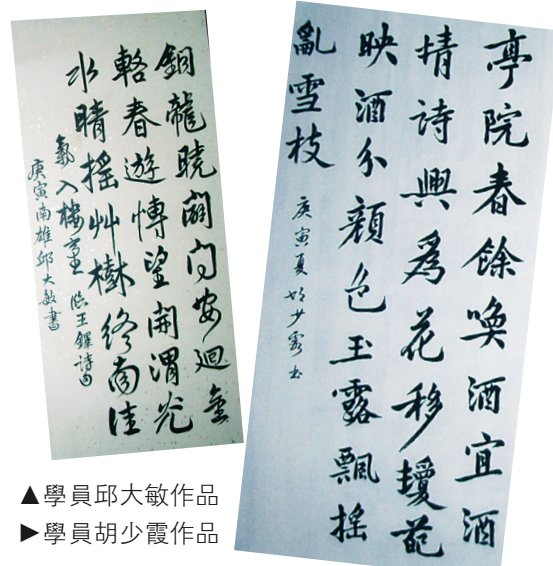 銅龍曉闢問安迴金
輅春遊博望開渭光
水晴搖艸樹終南佳
氣入樓臺 臨王鐸詩句
庚寅南雄邱大敏書
亭院春餘喚酒宜酒
情詩興爲花移瓊葩
映酒分顏色玉露飄搖
亂雪枝 庚寅夏 胡少霞書
▲學員邱大敏作品
▶學員胡少霞作品